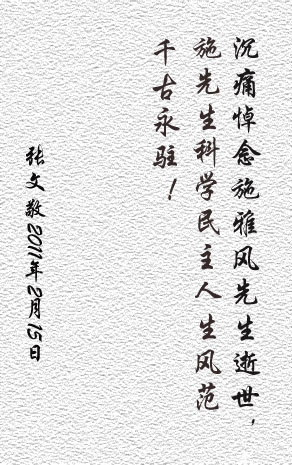 沉痛悼念施雅风先生逝世，
施先生科学民主人生风范
千古永驻！
张文敬2011年2月15日